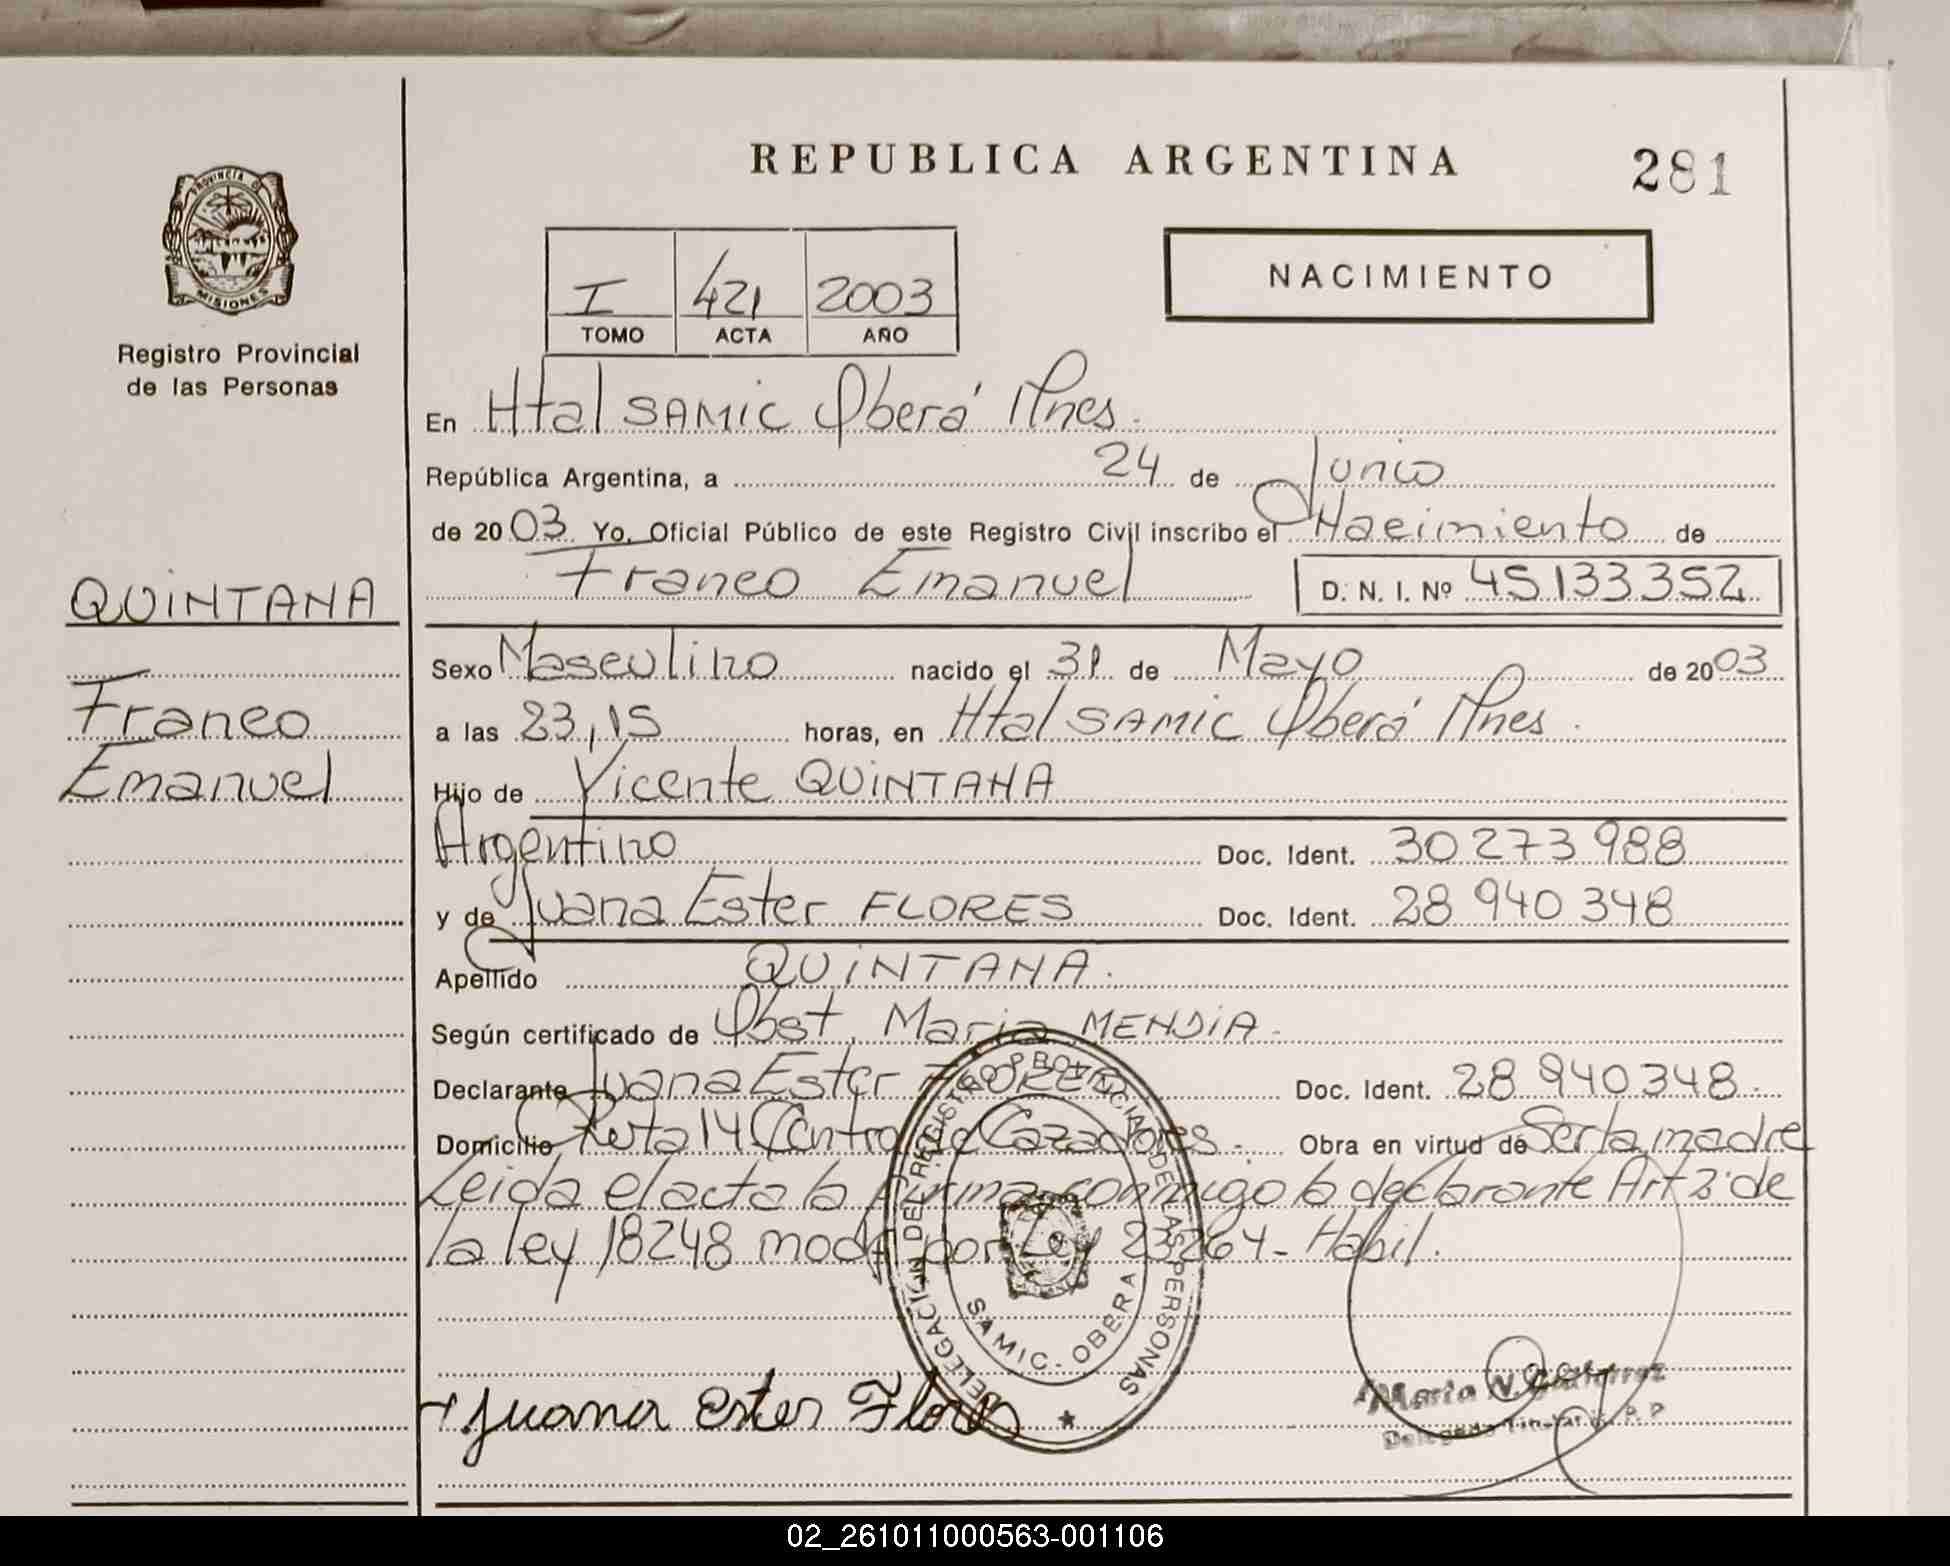 REPUBLICA ARGENTINA
281
PROVINCIA D
MISIONES
Registro Provincial
de las Personas
I 421 2003
TOMO ACTA AÑO
NACIMIENTO
En Htal SAMIC Oberá Mnes.
República Argentina, a 24 de Junio
de 2003 Yo, Oficial Público de este Registro Civil inscribo el Nacimiento de
Franco Emanuel D. N. I. Nº 45.133.352
QUINTANA
Franco
Emanuel
Sexo Masculino nacido el 31 de Mayo de 2003
a las 23,15 horas, en Htal SAMIC Oberá Mnes.
Hijo de Vicente QUINTANA
Argentino Doc. Ident. 30 273 988
y de Juana Ester FLORES Doc. Ident. 28 940 348
Apellido QUINTANA.
Según certificado de Obst. Maria MENDIA.
Declarante Juana Ester FLORES Doc. Ident. 28 940 348.
Domicilio Ruta 14 Centro de Cazadores. Obra en virtud de Ser la madre
Leida el acta la firma conmigo la declarante Art 2º de
la ley 18248 modif por Ley 23264 - Habil.
DELEGACIÓN DEL REGISTRO PROVINCIAL DE LAS PERSONAS
SAMIC - OBERA
Juana Ester Flores
Maria N. Gutierrez
Delegada Titular R. P. P.
02_261011000563-001106